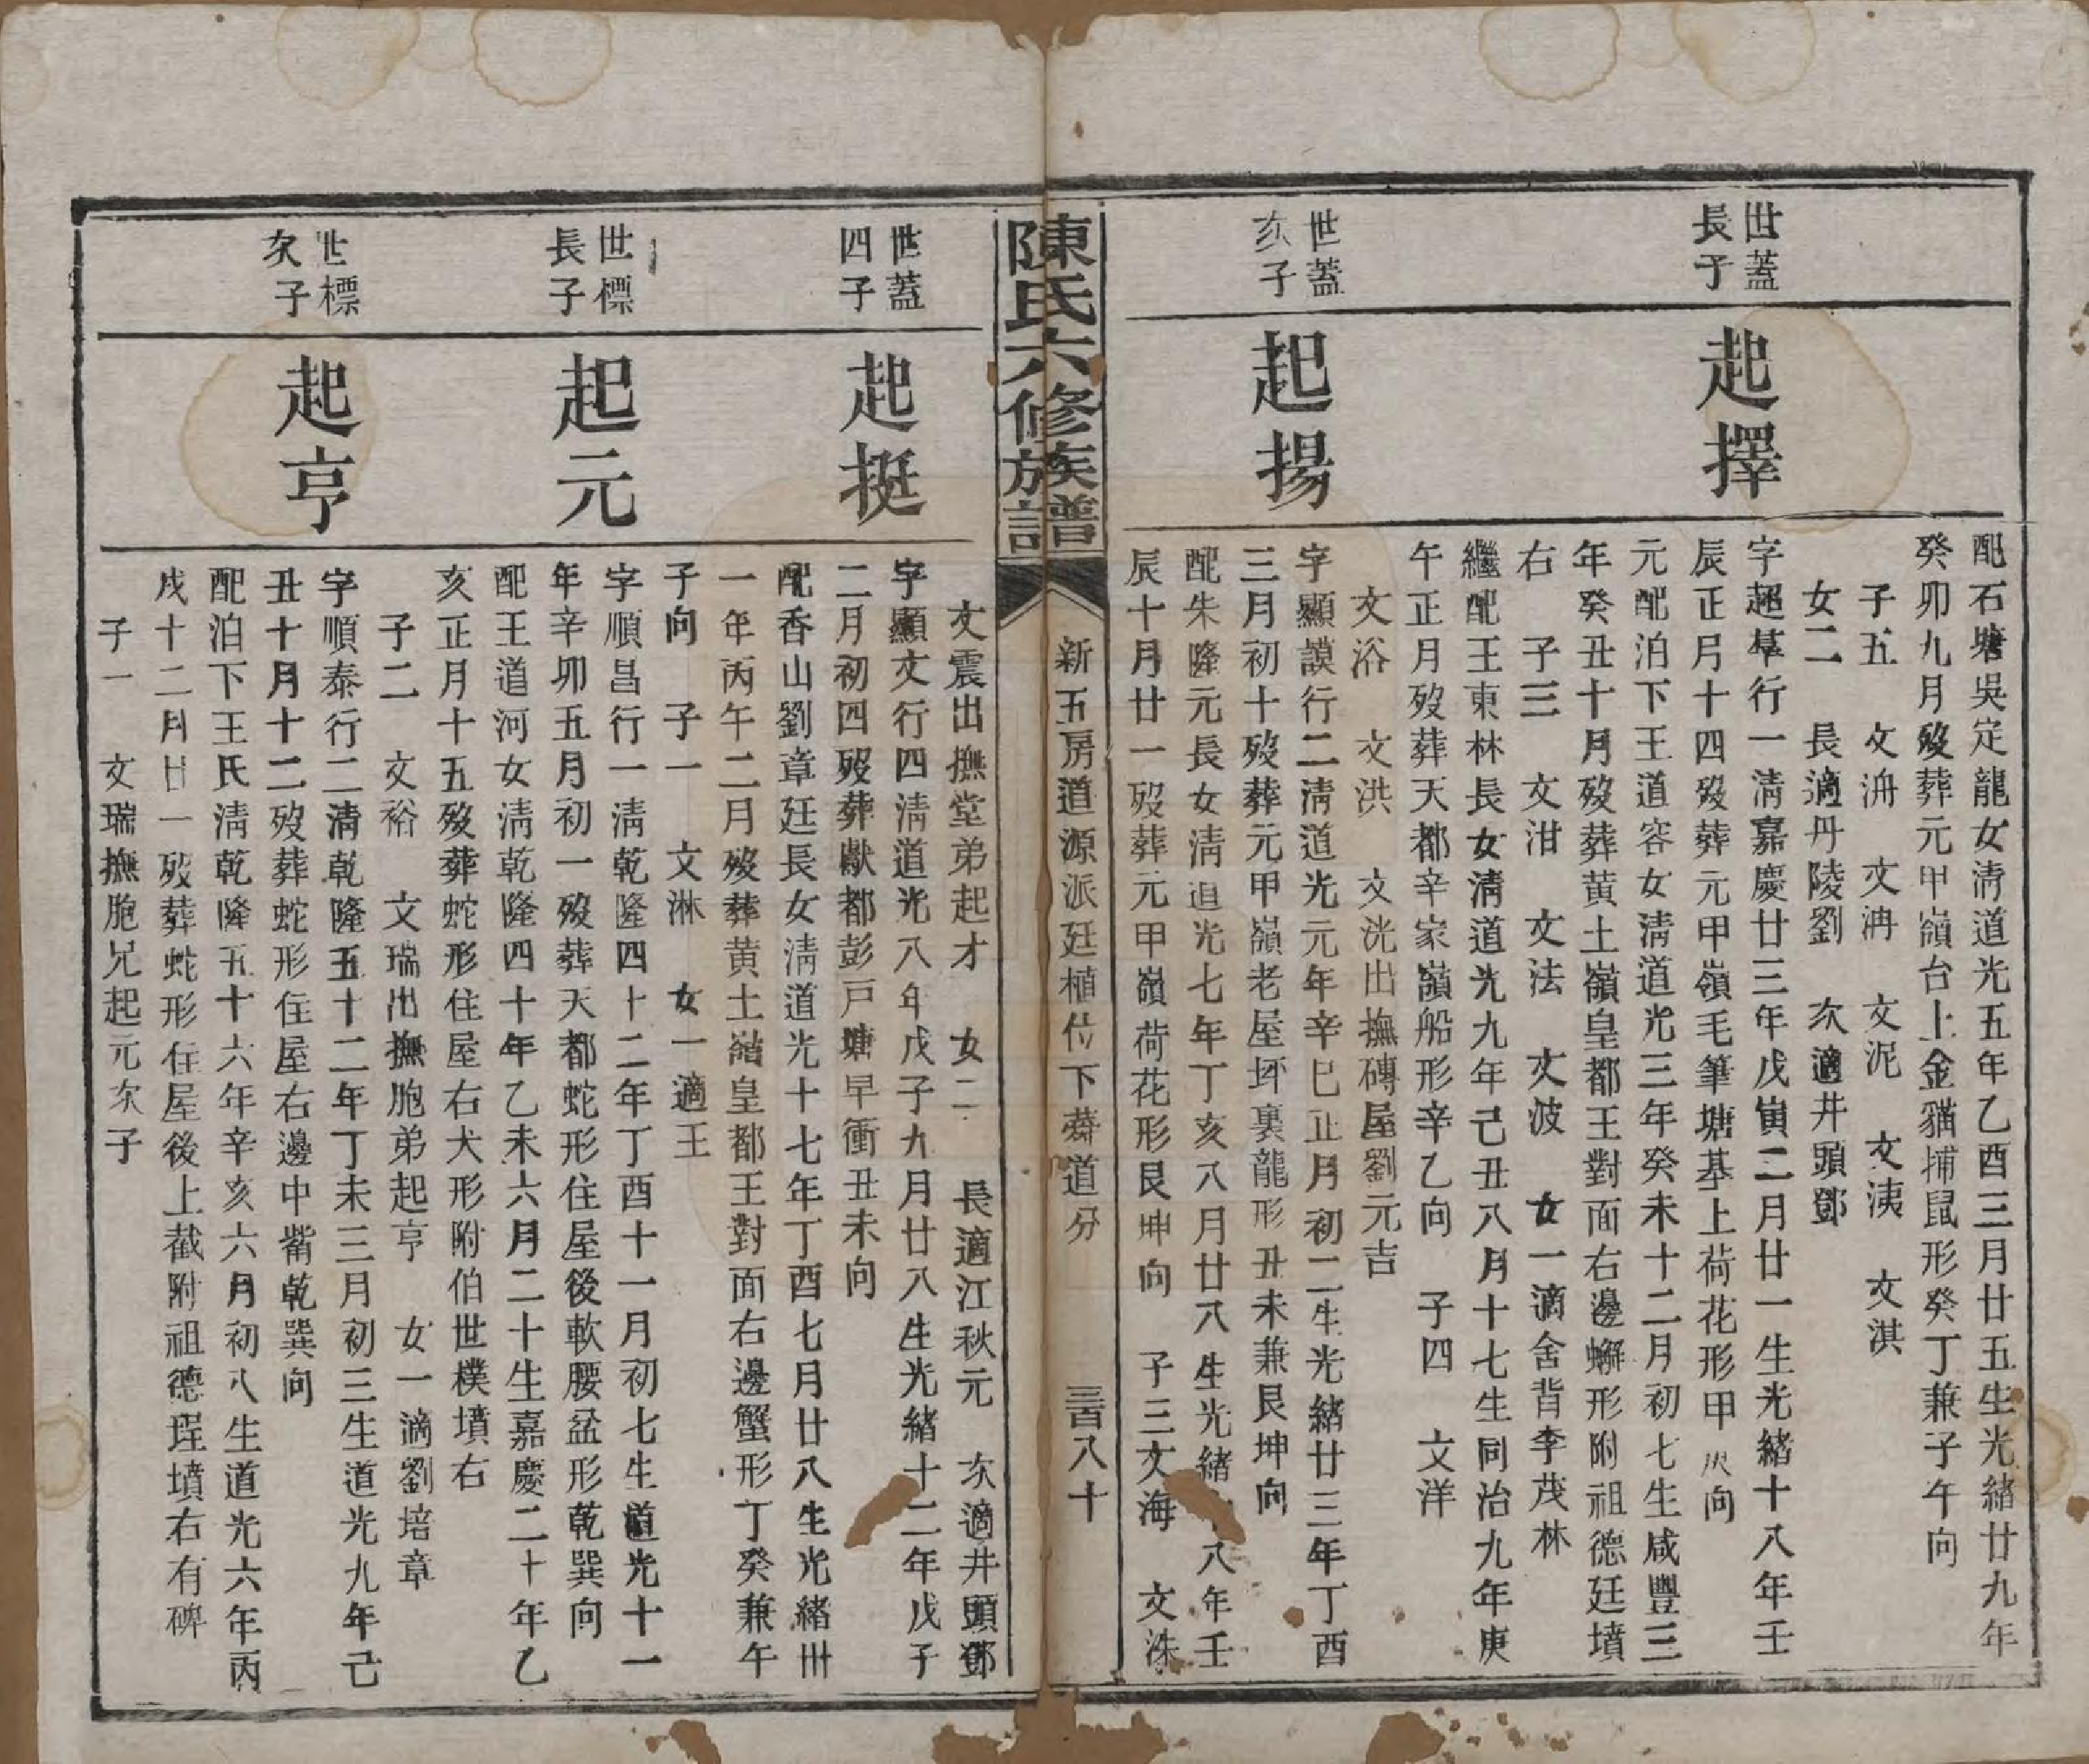 配石塘吳定龍女淸道光五年乙酉三月廿五生光緖廿九年
癸卯九月歿葬元甲嶺台上金貓捕鼠形癸丁兼子午向
子五 文洀 文洅 文泥 文洟 文淇
女二 長適丹陵劉 次適井頭鄧
世蓋
長子
起擇
字超羣行一淸嘉慶廿三年戊寅二月廿一生光緖十八年壬
辰正月十四歿葬元甲嶺毛筆塘基上荷花形甲庚向
元配泊下王道容女淸道光三年癸未十二月初七生咸豐三
年癸丑十月歿葬黃土嶺皇都王對面右邊蠏形附祖德廷墳
右 子三 文泔 文法 文波 女一適舍背李茂林
繼配王東林長女淸道光九年己丑八月十七生同治九年庚
午正月歿葬天都辛家嶺船形辛乙向 子四 文洋
文浴 文洪 文洸出撫磚屋劉元吉
世蓋
次子
起揚
字顯謨行二淸道光元年辛巳正月初二生光緖廿三年丁酉
三月初十歿葬元甲嶺老屋坪裏龍形丑未兼艮坤向
配朱隆元長女淸道光七年丁亥八月廿八生光緖十八年壬
辰十月廿一歿葬元甲嶺荷花形艮坤向 子三文海 文洙
陳氏六修族譜
新五房道源派廷植位下蕣道分
三百八十
文震出撫堂弟起才 女二 長適江秋元 次適井頭鄧
世蓋
四子
起挺
字顯文行四淸道光八年戊子九月廿八生光緖十二年戊子
二月初四歿葬獻都彭戸塘早衝丑未向
配香山劉章廷長女淸道光十七年丁酉七月廿八生光緖卅
一年丙午二月歿葬黃土嶺皇都王對面右邊蟹形丁癸兼午
子向 子一 文淋 女一適王
世標
長子
起元
字順昌行一淸乾隆四十二年丁酉十一月初七生道光十一
年辛卯五月初一歿葬天都蛇形住屋後軟腰盆形乾巽向
配王道河女淸乾隆四十年乙未六月二十生嘉慶二十年乙
亥正月十五歿葬蛇形住屋右犬形附伯世樸墳右
子二 文裕 文瑞出撫胞弟起亨 女一適劉培章
世標
次子
起亨
字順泰行二淸乾隆五十二年丁未三月初三生道光九年己
丑十月十二歿葬蛇形住屋右邊中嘴乾巽向
配泊下王氏淸乾隆五十六年辛亥六月初八生道光六年丙
戌十二月廿一歿葬蛇形住屋後上截附祖德珵墳右有碑
子一 文瑞撫胞兄起元次子